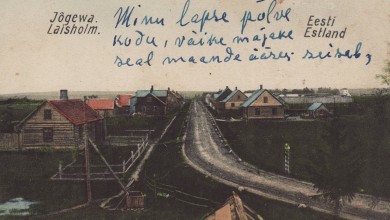 Jõgewa.
Laisholm.
Eesti
Estland
Minu lapse põlve
kodu, väike majake
seal maande ääres seiseb,